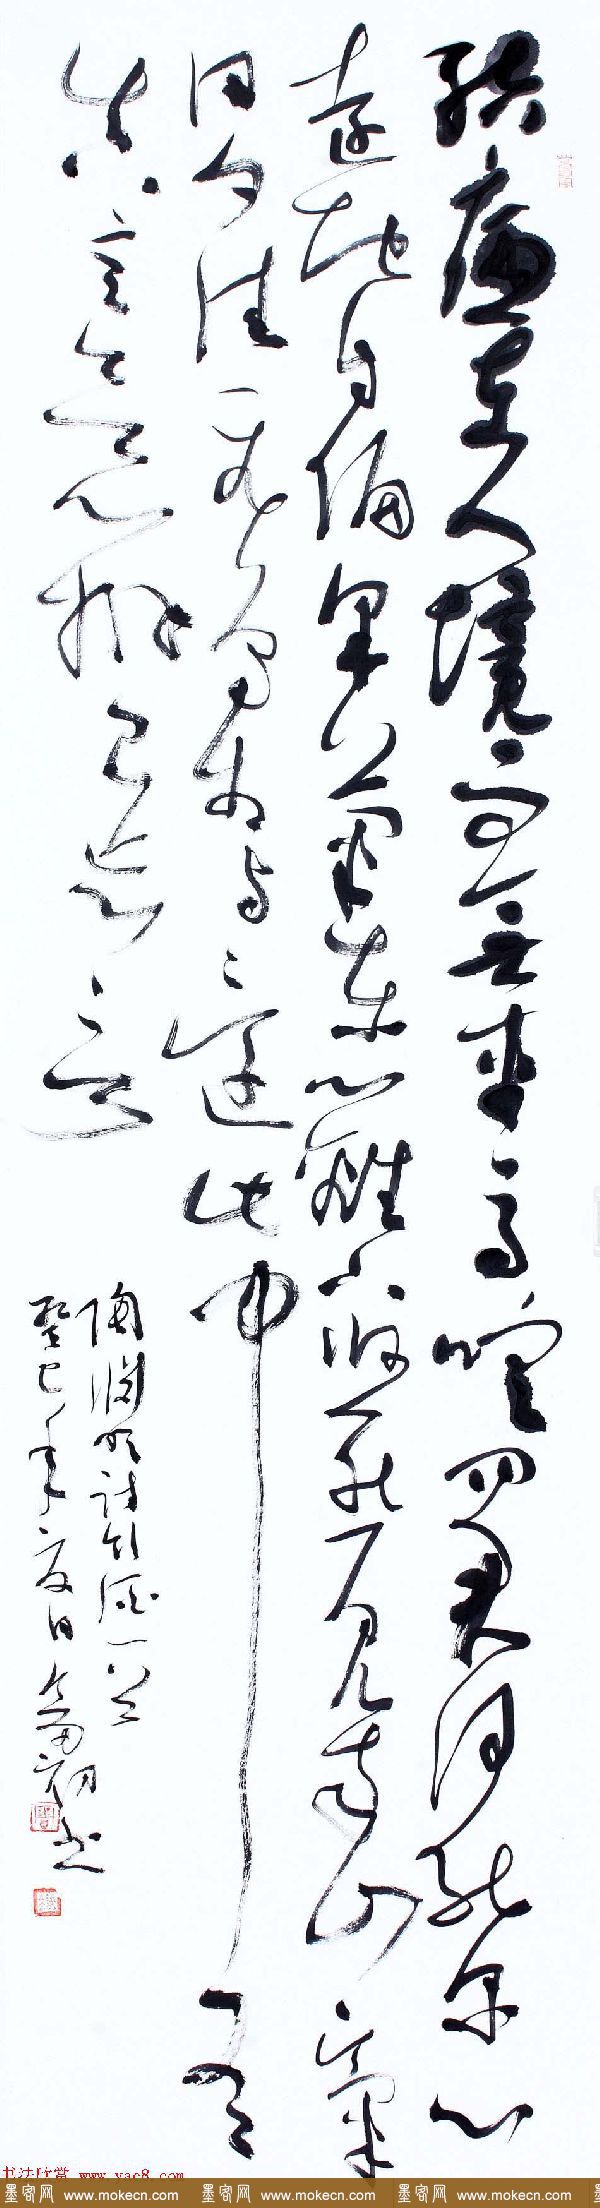 結廬在人境而無車馬喧問君何能尔心
遠地自偏采菊東籬下悠然見南山氣
日夕佳飛鳥相与還此中有
真意欲辨已忘言
陶渊明诗饮酒一首
癸巳年夏日书
书法欣赏 www.yac8.com
墨客网 www.mokecn.com 墨客网 www.mokecn.com 墨客网 www.mokecn.com